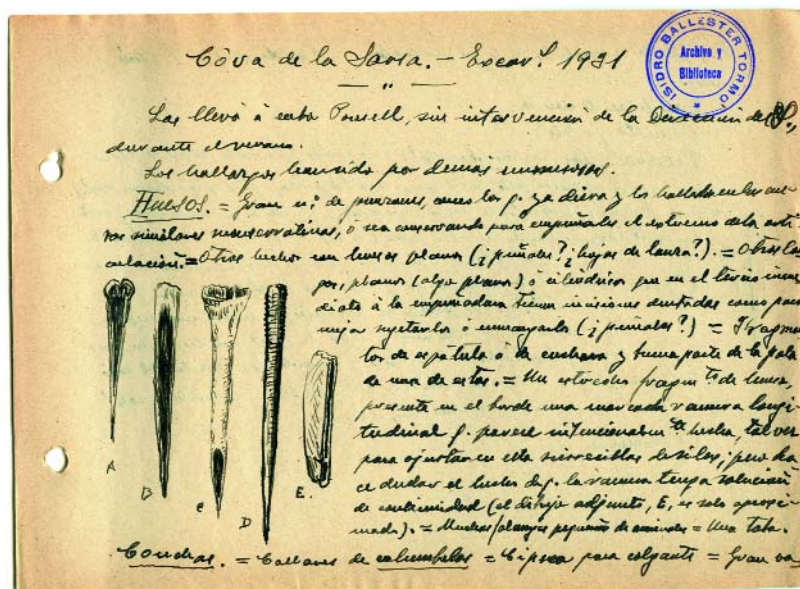 Còva de la Sarsa. - Excav.s 1931
ISIDRO BALLESTER TORMO
Archivo y
Biblioteca
Las llevó á cabo Ponsell, sin intervención de la Dirección del
durante el verano.
Los hallazgos han sido por demas numerosos.
HUESOS. = Gran n.º de punzones, como los q. ya diera y los hallados en las
similares, ó sea conservando para empuñarles el extremo de la arti-
culación. = Otros hechos con huesos planos (¿puñales? ¿hojas de lanza?). = Otros lar-
gos, planos (algo planos) ó cilíndricos que en el tercio inme-
diato á la empuñadura tienen incisiones dentadas como para
mejor sujetarlos ó enmangarlos (¿puñales?) = Fragmen-
tos de espátula ó de cuchara y buena parte de la pala
de una de estas. = Un estrecho fragm.to de hueso,
presenta en el borde una marcada ranura longi-
tudinal q. parece intencionalm.te hecha, tal vez
para ajustar en ella sierrecillas de silex; pero ha-
ce dudar el hecho de q. la ranura tenga solución
de continuidad (el dibujo adjunto, E, es solo aproxi-
mado). = Muchas falanges pequeñas de animales = Una taba.
A
B
C
D
E.
Conchas. = Collares de columbelas = Cipraea para colgante = Gran va-